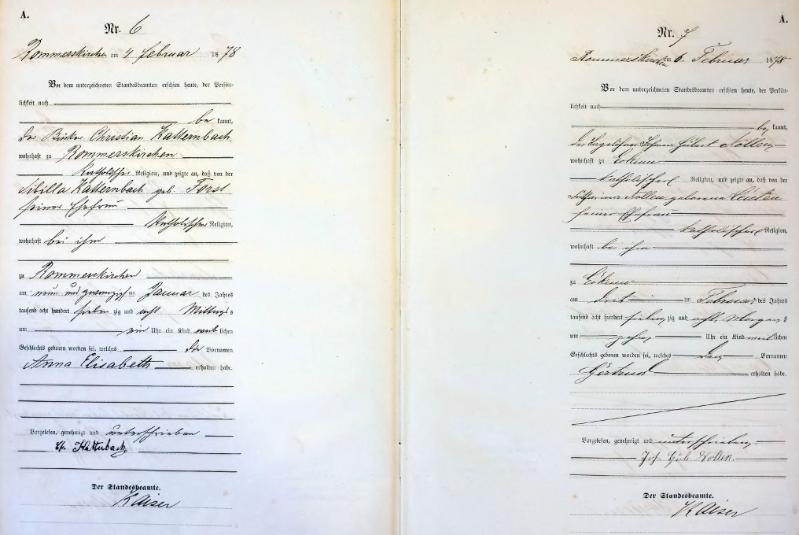 A.
Nr. 6
Rommerskirchen am 4 Februar 1878
Vor dem unterzeichneten Standesbeamten erschien heute, der Persön-
lichkeit nach
be kannt,
der Christian Katternbach
wohnhaft zu Rommerskirchen
katholischer Religion, und zeigte an, daß von der
Sibilla Katternbach geb. Forst
seiner Ehefrau
katholischer Religion,
wohnhaft bei ihm
zu Rommerskirchen
am neun und zwanzigsten Januar des Jahres
tausend acht hundert sieben zig und acht Mittags
um ein Uhr ein Kind weib lichen
Geschlechts geboren worden sei, welches die Vornamen
Anna Elisabeth
erhalten habe.
Vorgelesen, genehmigt und unterschrieben
Katternbach
Der Standesbeamte.
Kaiser
A.
Nr. 7
Rommerskirchen am 6. Februar 1878
Vor dem unterzeichneten Standesbeamten erschien heute, der Persön-
lichkeit nach
be kannt,
der Tagelöhner Johann Hubert
wohnhaft zu
katholischer Religion, und zeigte an, daß von der
geborene
seiner Ehefrau
katholischer Religion,
wohnhaft bei ihm
zu
am Februar des Jahres
tausend acht hundert sieben zig und acht
um Uhr ein Kind lichen
Geschlechts geboren worden sei, welches Vornamen
Gertrud erhalten habe.
Vorgelesen, genehmigt und unterschrieben
Joh. Hub.
Der Standesbeamte.
Kaiser